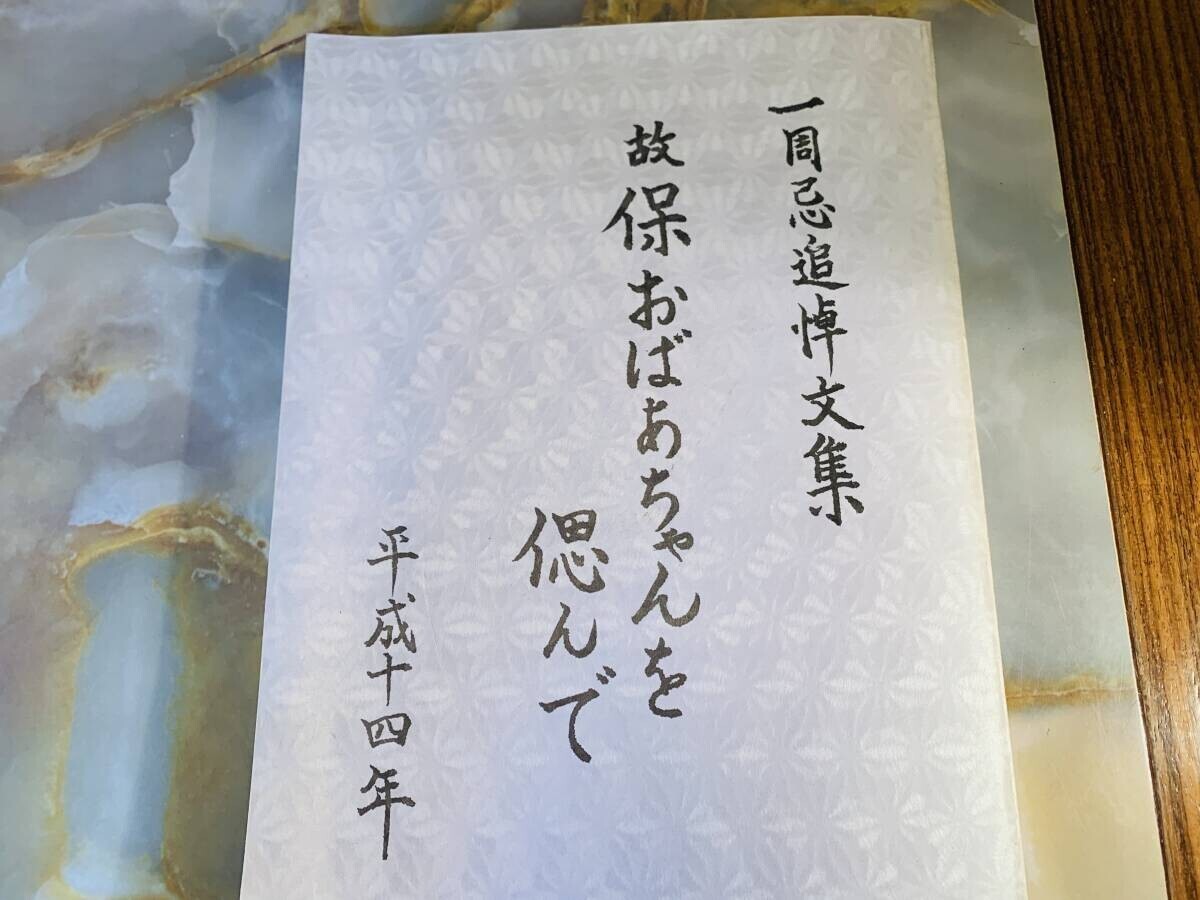 一周忌追悼文集
故保おばあちゃんを
偲んで
平成十四年